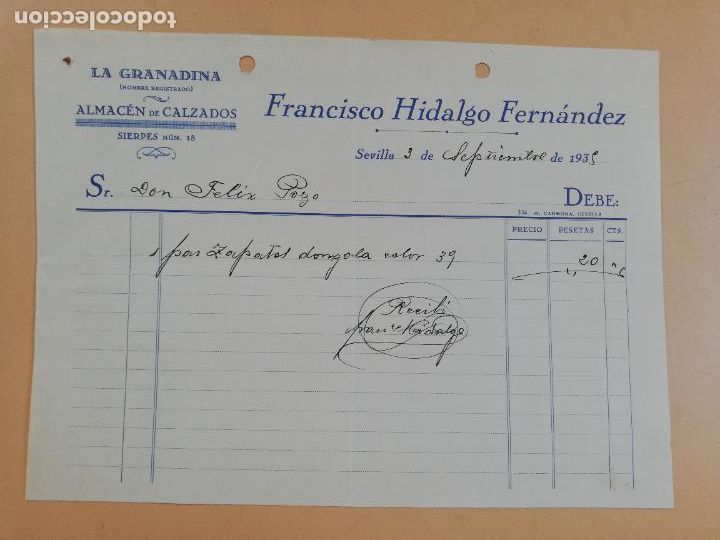 todocoleccion
LA GRANADINA
(NOMBRE REGISTRADO)
ALMACÉN DE CALZADOS
SIERPES NÚM. 18
Francisco Hidalgo Fernández
Sevilla 3 de Septiembre de 1935
Sr. Don Felix Pozo DEBE:
M. CARMONA, SEVILLA
PRECIO PESETAS CTS.
1 par Zapatos dongola color 39 20
Recibí
Hidalgo